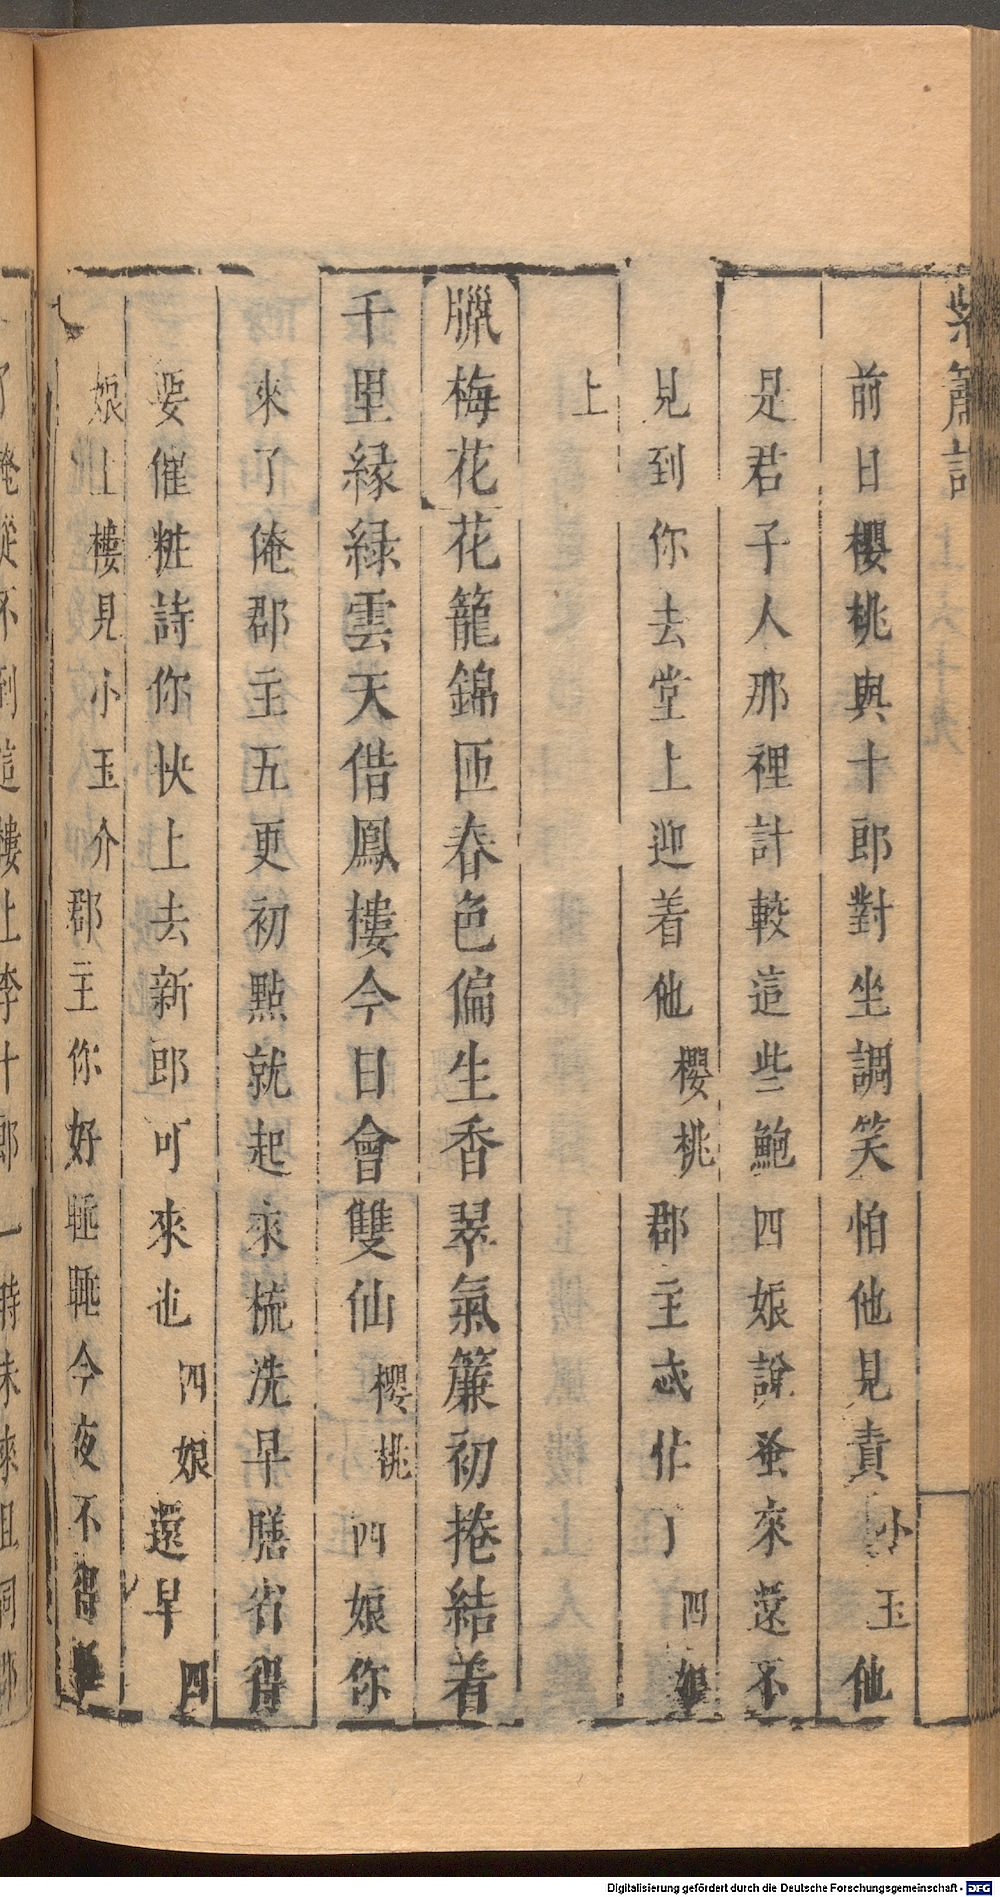 紫簫記
前日櫻桃與十郎對坐調笑怕他見責小玉他
是君子人那裡計較這些鮑四娘說蚤來還不
見到你去堂上迎着他櫻桃郡主忒作丁四娘
上
臘梅花花籠錦匝春色偏生香翠氣簾初捲結着
千里緣綠雲天借鳳樓今日會雙仙櫻桃四娘你
來了俺郡主五更初點就起來梳洗早膳省得
要催粧詩你快上去新郎可來也四娘還早四
娘上樓見小玉介郡主你好睡睡今夜不得
了俺從不到這樓上李十郎一時未來且同郡
Digitalisierung gefördert durch die Deutsche Forschungsgemeinschaft - DFG